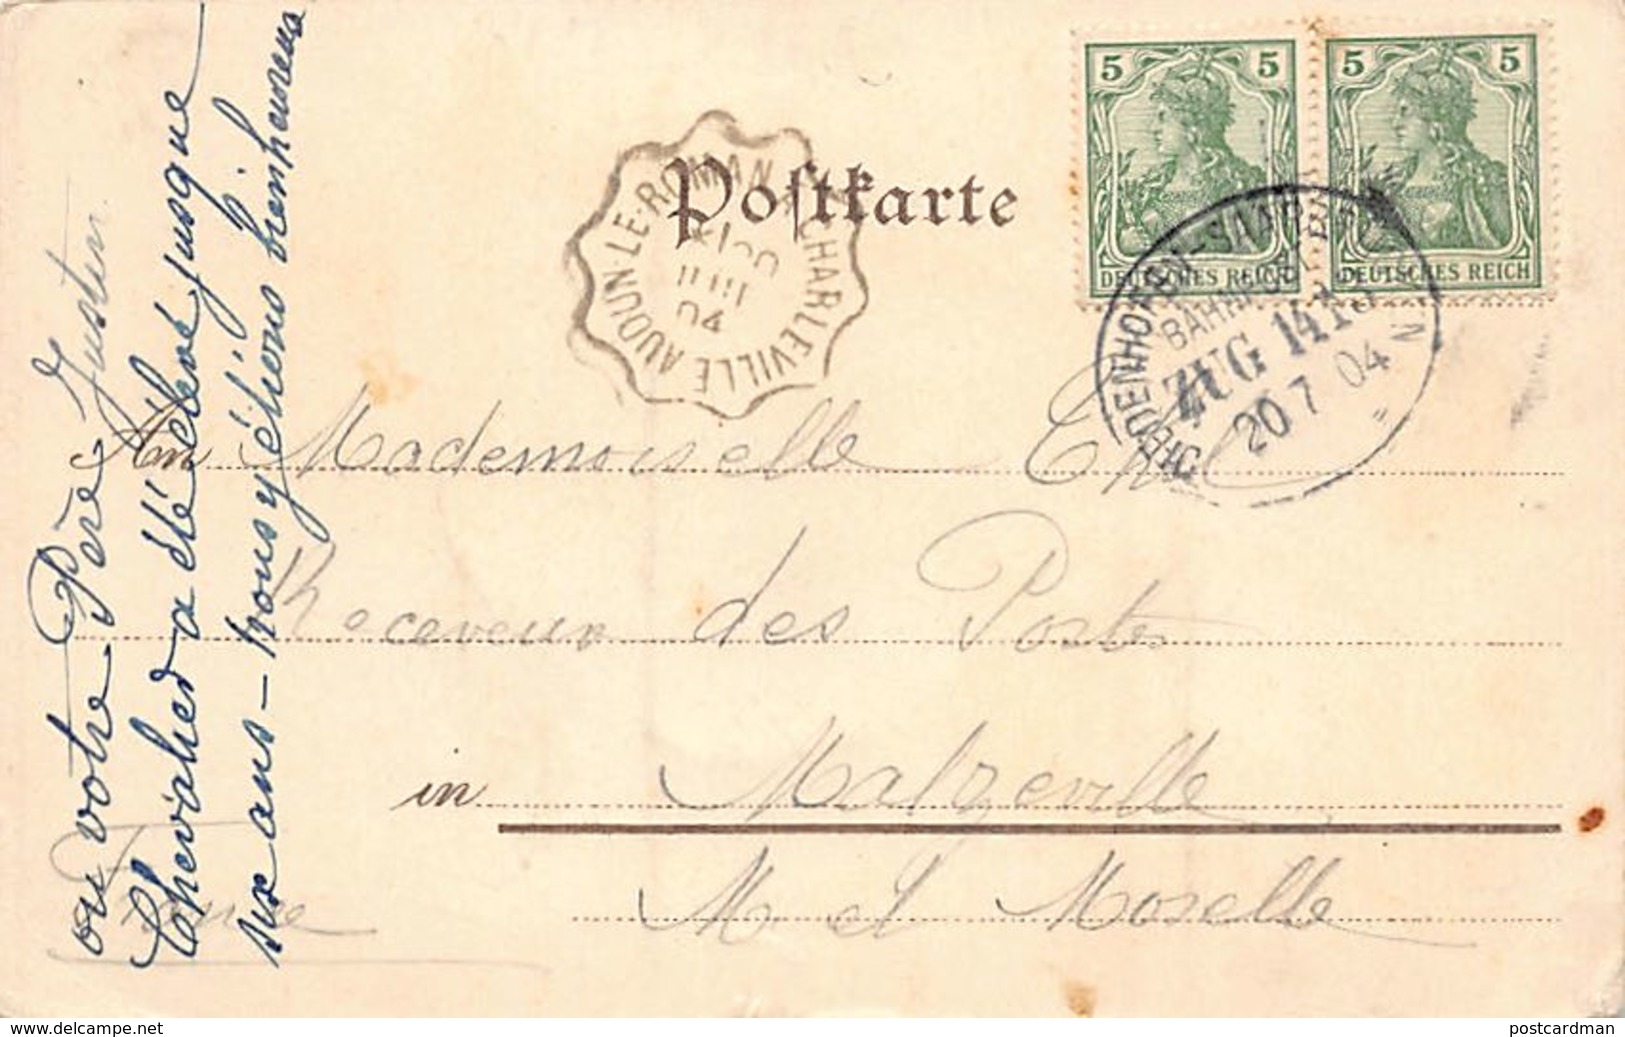 5 5 5 5
DEUTSCHES REICH DEUTSCHES REICH
Postkarte
AUDUN-LE-ROMAN CHARLEVILLE
04
DIEDENHOFEN-
BAHNPOST
ZUG 141
20 7 04
An Mademoiselle
Receveur des Postes
in Malzéville
M et Moselle
France
où votre Père Justin
Chevalier a été élevé jusque
six ans - nous y étions bienheureux
www.delcampe.net
postcardman